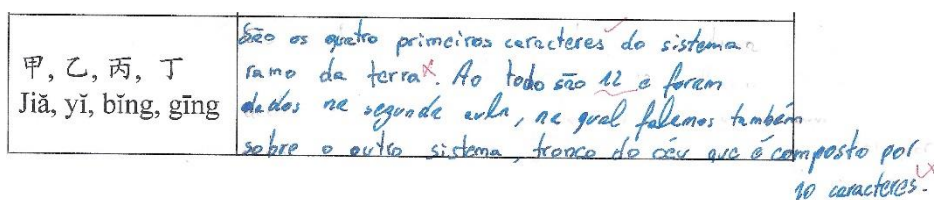 甲, 乙, 丙, 丁
Jiǎ, yǐ, bǐng, gīng
São os quatro primeiros caracteres do sistema
ramo da terra. Ao todo são 12 e foram
dados na segunda aula, na qual falamos também
sobre o outro sistema, tronco do céu que é composto por
10 caracteres.